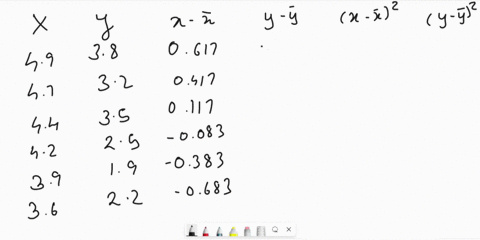 X Y x - x̄ y - ȳ (x - x̄)² (y - ȳ)²
4.9 3.8 0.617
4.7 3.2 0.417
4.4 3.5 0.117
4.2 2.5 -0.083
3.9 1.9 -0.383
3.6 2.2 -0.683